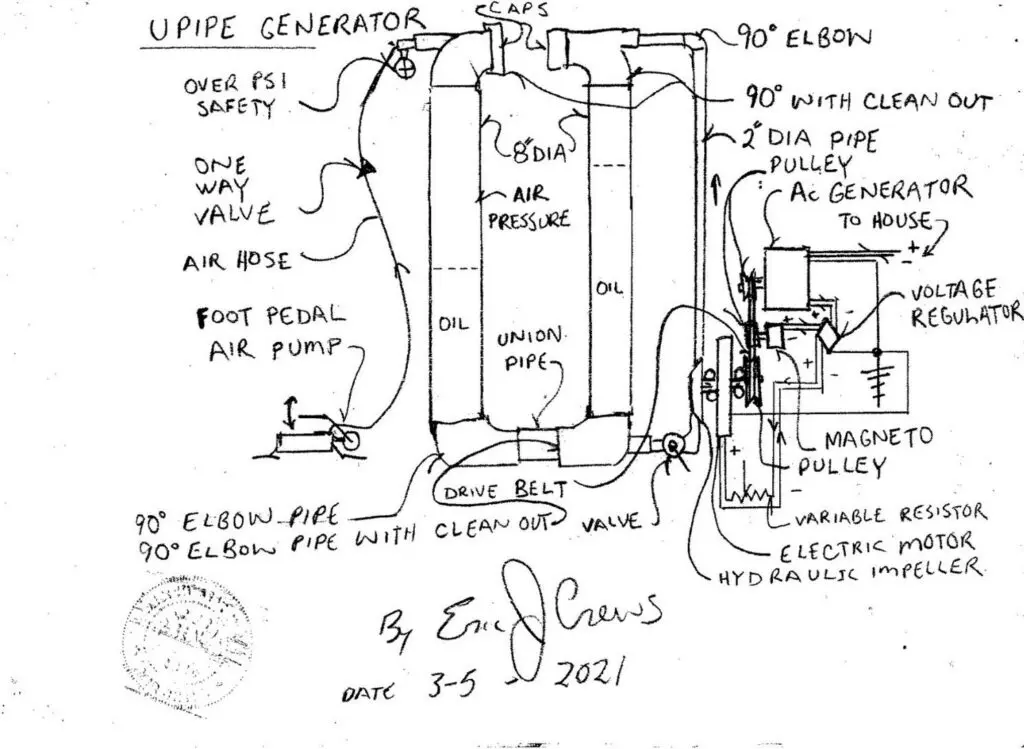 UPIPE GENERATOR
CAPS
90° ELBOW
OVER PSI
SAFETY
90° WITH CLEAN OUT
8" DIA
2" DIA PIPE
PULLEY
ONE
WAY
VALVE
AIR
PRESSURE
AC GENERATOR
TO HOUSE
+
-
AIR HOSE
OIL
OIL
VOLTAGE
REGULATOR
FOOT PEDAL
AIR PUMP
UNION
PIPE
+
-
+
-
+
-
MAGNETO
PULLEY
DRIVE BELT
+
-
90° ELBOW PIPE
90° ELBOW PIPE WITH CLEAN OUT
VALVE
VARIABLE RESISTOR
ELECTRIC MOTOR
HYDRAULIC IMPELLER
By Eric J Crews
DATE 3-5-2021